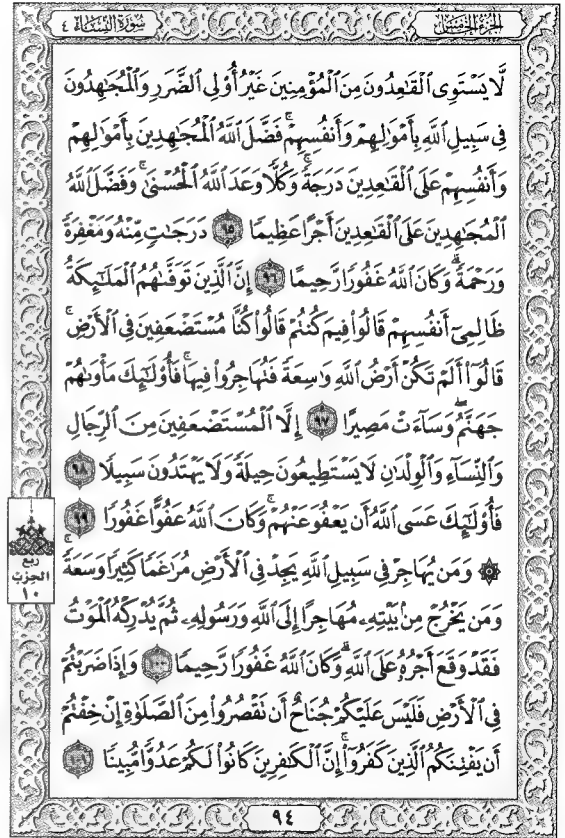 الجزء الخامس
سورة النساء ٤
لَّا يَسْتَوِى ٱلْقَٰعِدُونَ مِنَ ٱلْمُؤْمِنِينَ غَيْرُ أُو۟لِى ٱلضَّرَرِ وَٱلْمُجَٰهِدُونَ
فِى سَبِيلِ ٱللَّهِ بِأَمْوَٰلِهِمْ وَأَنفُسِهِمْ ۚ فَضَّلَ ٱللَّهُ ٱلْمُجَٰهِدِينَ بِأَمْوَٰلِهِمْ
وَأَنفُسِهِمْ عَلَى ٱلْقَٰعِدِينَ دَرَجَةً ۚ وَكُلًّا وَعَدَ ٱللَّهُ ٱلْحُسْنَىٰ ۚ وَفَضَّلَ ٱللَّهُ
ٱلْمُجَٰهِدِينَ عَلَى ٱلْقَٰعِدِينَ أَجْرًا عَظِيمًا ٩٥ دَرَجَٰتٍ مِّنْهُ وَمَغْفِرَةً
وَرَحْمَةً ۚ وَكَانَ ٱللَّهُ غَفُورًا رَّحِيمًا ٩٦ إِنَّ ٱلَّذِينَ تَوَفَّىٰهُمُ ٱلْمَلَٰٓئِكَةُ
ظَالِمِىٓ أَنفُسِهِمْ قَالُوا۟ فِيمَ كُنتُمْ ۖ قَالُوا۟ كُنَّا مُسْتَضْعَفِينَ فِى ٱلْأَرْضِ ۚ
قَالُوٓا۟ أَلَمْ تَكُنْ أَرْضُ ٱللَّهِ وَٰسِعَةً فَتُهَاجِرُوا۟ فِيهَا ۚ فَأُو۟لَٰٓئِكَ مَأْوَىٰهُمْ
جَهَنَّمُ ۖ وَسَآءَتْ مَصِيرًا ٩٧ إِلَّا ٱلْمُسْتَضْعَفِينَ مِنَ ٱلرِّجَالِ
وَٱلنِّسَآءِ وَٱلْوِلْدَٰنِ لَا يَسْتَطِيعُونَ حِيلَةً وَلَا يَهْتَدُونَ سَبِيلًا ٩٨
فَأُو۟لَٰٓئِكَ عَسَى ٱللَّهُ أَن يَعْفُوَ عَنْهُمْ ۚ وَكَانَ ٱللَّهُ عَفُوًّا غَفُورًا ٩٩
۞ وَمَن يُهَاجِرْ فِى سَبِيلِ ٱللَّهِ يَجِدْ فِى ٱلْأَرْضِ مُرَٰغَمًا كَثِيرًا وَسَعَةً ۚ
وَمَن يَخْرُجْ مِنۢ بَيْتِهِۦ مُهَاجِرًا إِلَى ٱللَّهِ وَرَسُولِهِۦ ثُمَّ يُدْرِكْهُ ٱلْمَوْتُ
فَقَدْ وَقَعَ أَجْرُهُۥ عَلَى ٱللَّهِ ۗ وَكَانَ ٱللَّهُ غَفُورًا رَّحِيمًا ١٠٠ وَإِذَا ضَرَبْتُمْ
فِى ٱلْأَرْضِ فَلَيْسَ عَلَيْكُمْ جُنَاحٌ أَن تَقْصُرُوا۟ مِنَ ٱلصَّلَوٰةِ إِنْ خِفْتُمْ
أَن يَفْتِنَكُمُ ٱلَّذِينَ كَفَرُوٓا۟ ۚ إِنَّ ٱلْكَٰفِرِينَ كَانُوا۟ لَكُمْ عَدُوًّا مُّبِينًا ١٠١
ربع
الحزب
١٠
٩٤